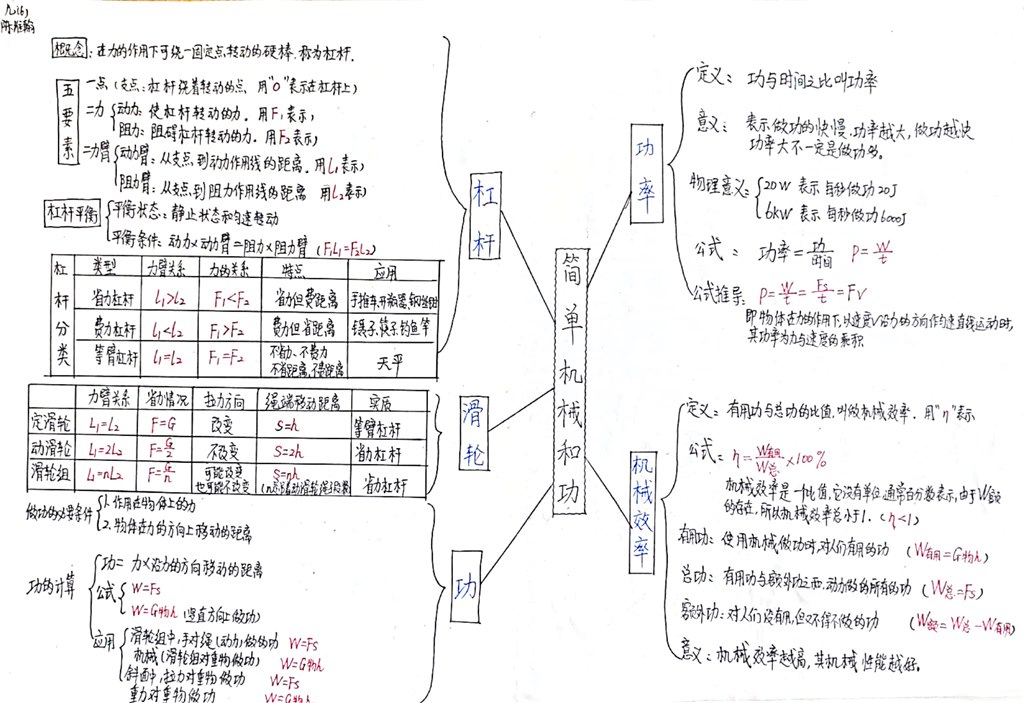 九(6)
概念：在力的作用下可绕一固定点转动的硬棒.称为杠杆.
五要素
一点（支点：杠杆绕着转动的点 用"O"表示在杠杆上）
二力
动力：使杠杆转动的力. 用F₁表示）
阻力：阻碍杠杆转动的力. 用F₂表示）
二力臂
动力臂：从支点到动力作用线的距离. 用L₁表示）
阻力臂：从支点到阻力作用线的距离 用L₂表示）
杠杆平衡
平衡状态：静止状态和匀速转动
平衡条件：动力×动力臂=阻力×阻力臂（F₁L₁=F₂L₂）
杠杆分类
类型 力臂关系 力的关系 特点 应用
省力杠杆 L₁>L₂ F₁<F₂ 省力但费距离 手推车.开瓶器.钢丝钳
费力杠杆 L₁<L₂ F₁>F₂ 费力但省距离 镊子.筷子.钓鱼竿
等臂杠杆 L₁=L₂ F₁=F₂ 不省力、不费力 不省距离，不费距离 天平
杠杆
力臂关系 省力情况 拉力方向 绳端移动距离 实质
定滑轮 L₁=L₂ F=G 改变 S=h 等臂杠杆
动滑轮 L₁=2L₂ F=G/2 不改变 S=2h 省力杠杆
滑轮组 L₁=nL₂ F=G/n 可能改变 也可能不改变 S=nh 省力杠杆
滑轮
做功的必要条件
1.作用在物体上的力
2.物体在力的方向上移动的距离
功的计算
功= 力×沿力的方向移动的距离
公式
W=Fs
W=G物h （竖直方向上做功）
应用
滑轮组中，手对绳（动力）做的功 W=Fs
机械（滑轮组对重物做功） W=G物h
斜面中，拉力对重物做功 W=Fs
重力对重物做功 W=G物h
功
简单机械和功
功率
定义： 功与时间之比叫功率
意义： 表示做功的快慢.功率越大，做功越快
功率大不一定是做功多。
物理意义：
20W 表示每秒做功20J
6kW 表示每秒做功6000J
公式： 功率=功/时间 P=W/t
公式推导： P=W/t=Fs/t=Fv
即物体在力的作用下，以速度V沿力的方向作匀速直线运动时，
其功率为力与速度的乘积
机械效率
定义：有用功与总功的比值.叫做机械效率. 用"η"表示
公式：η=W有用/W总×100%
机械效率是一比值，它没有单位.通常百分数表示，由于W额
的存在，所以机械效率总小于1.（η<1）
有用功：使用机械做功时，对人们有用的功 （W有用=G物h）
总功：有用功与额外功之和.动力做的所有的功 （W总=Fs）
额外功：对人们没有用，但又不得不做的功 （W额=W总-W有用）
意义：机械效率越高，其机械性能越好。